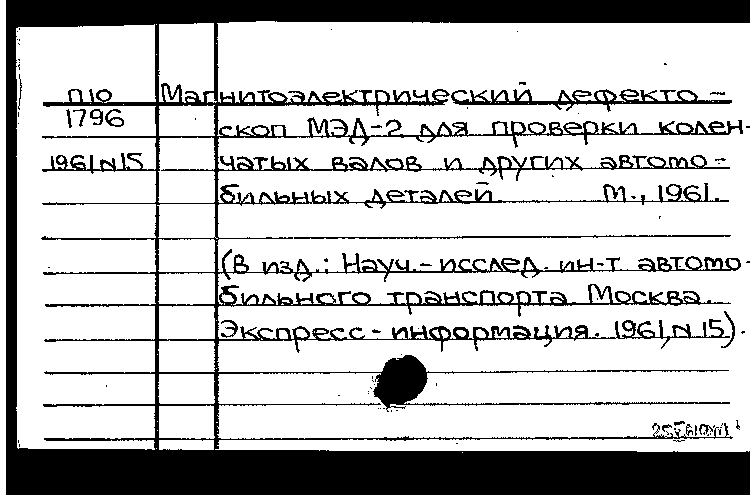 П10 Магнитоэлектрический дефекто-
1796 скоп МЭД-2 для проверки колен-
1961 N 15 чатых валов и других автомо-
бильных деталей М., 1961.
(В изд.: Науч.-исслед. ин-т автомо-
бильного транспорта Москва.
Экспресс-информация. 1961, N 15).